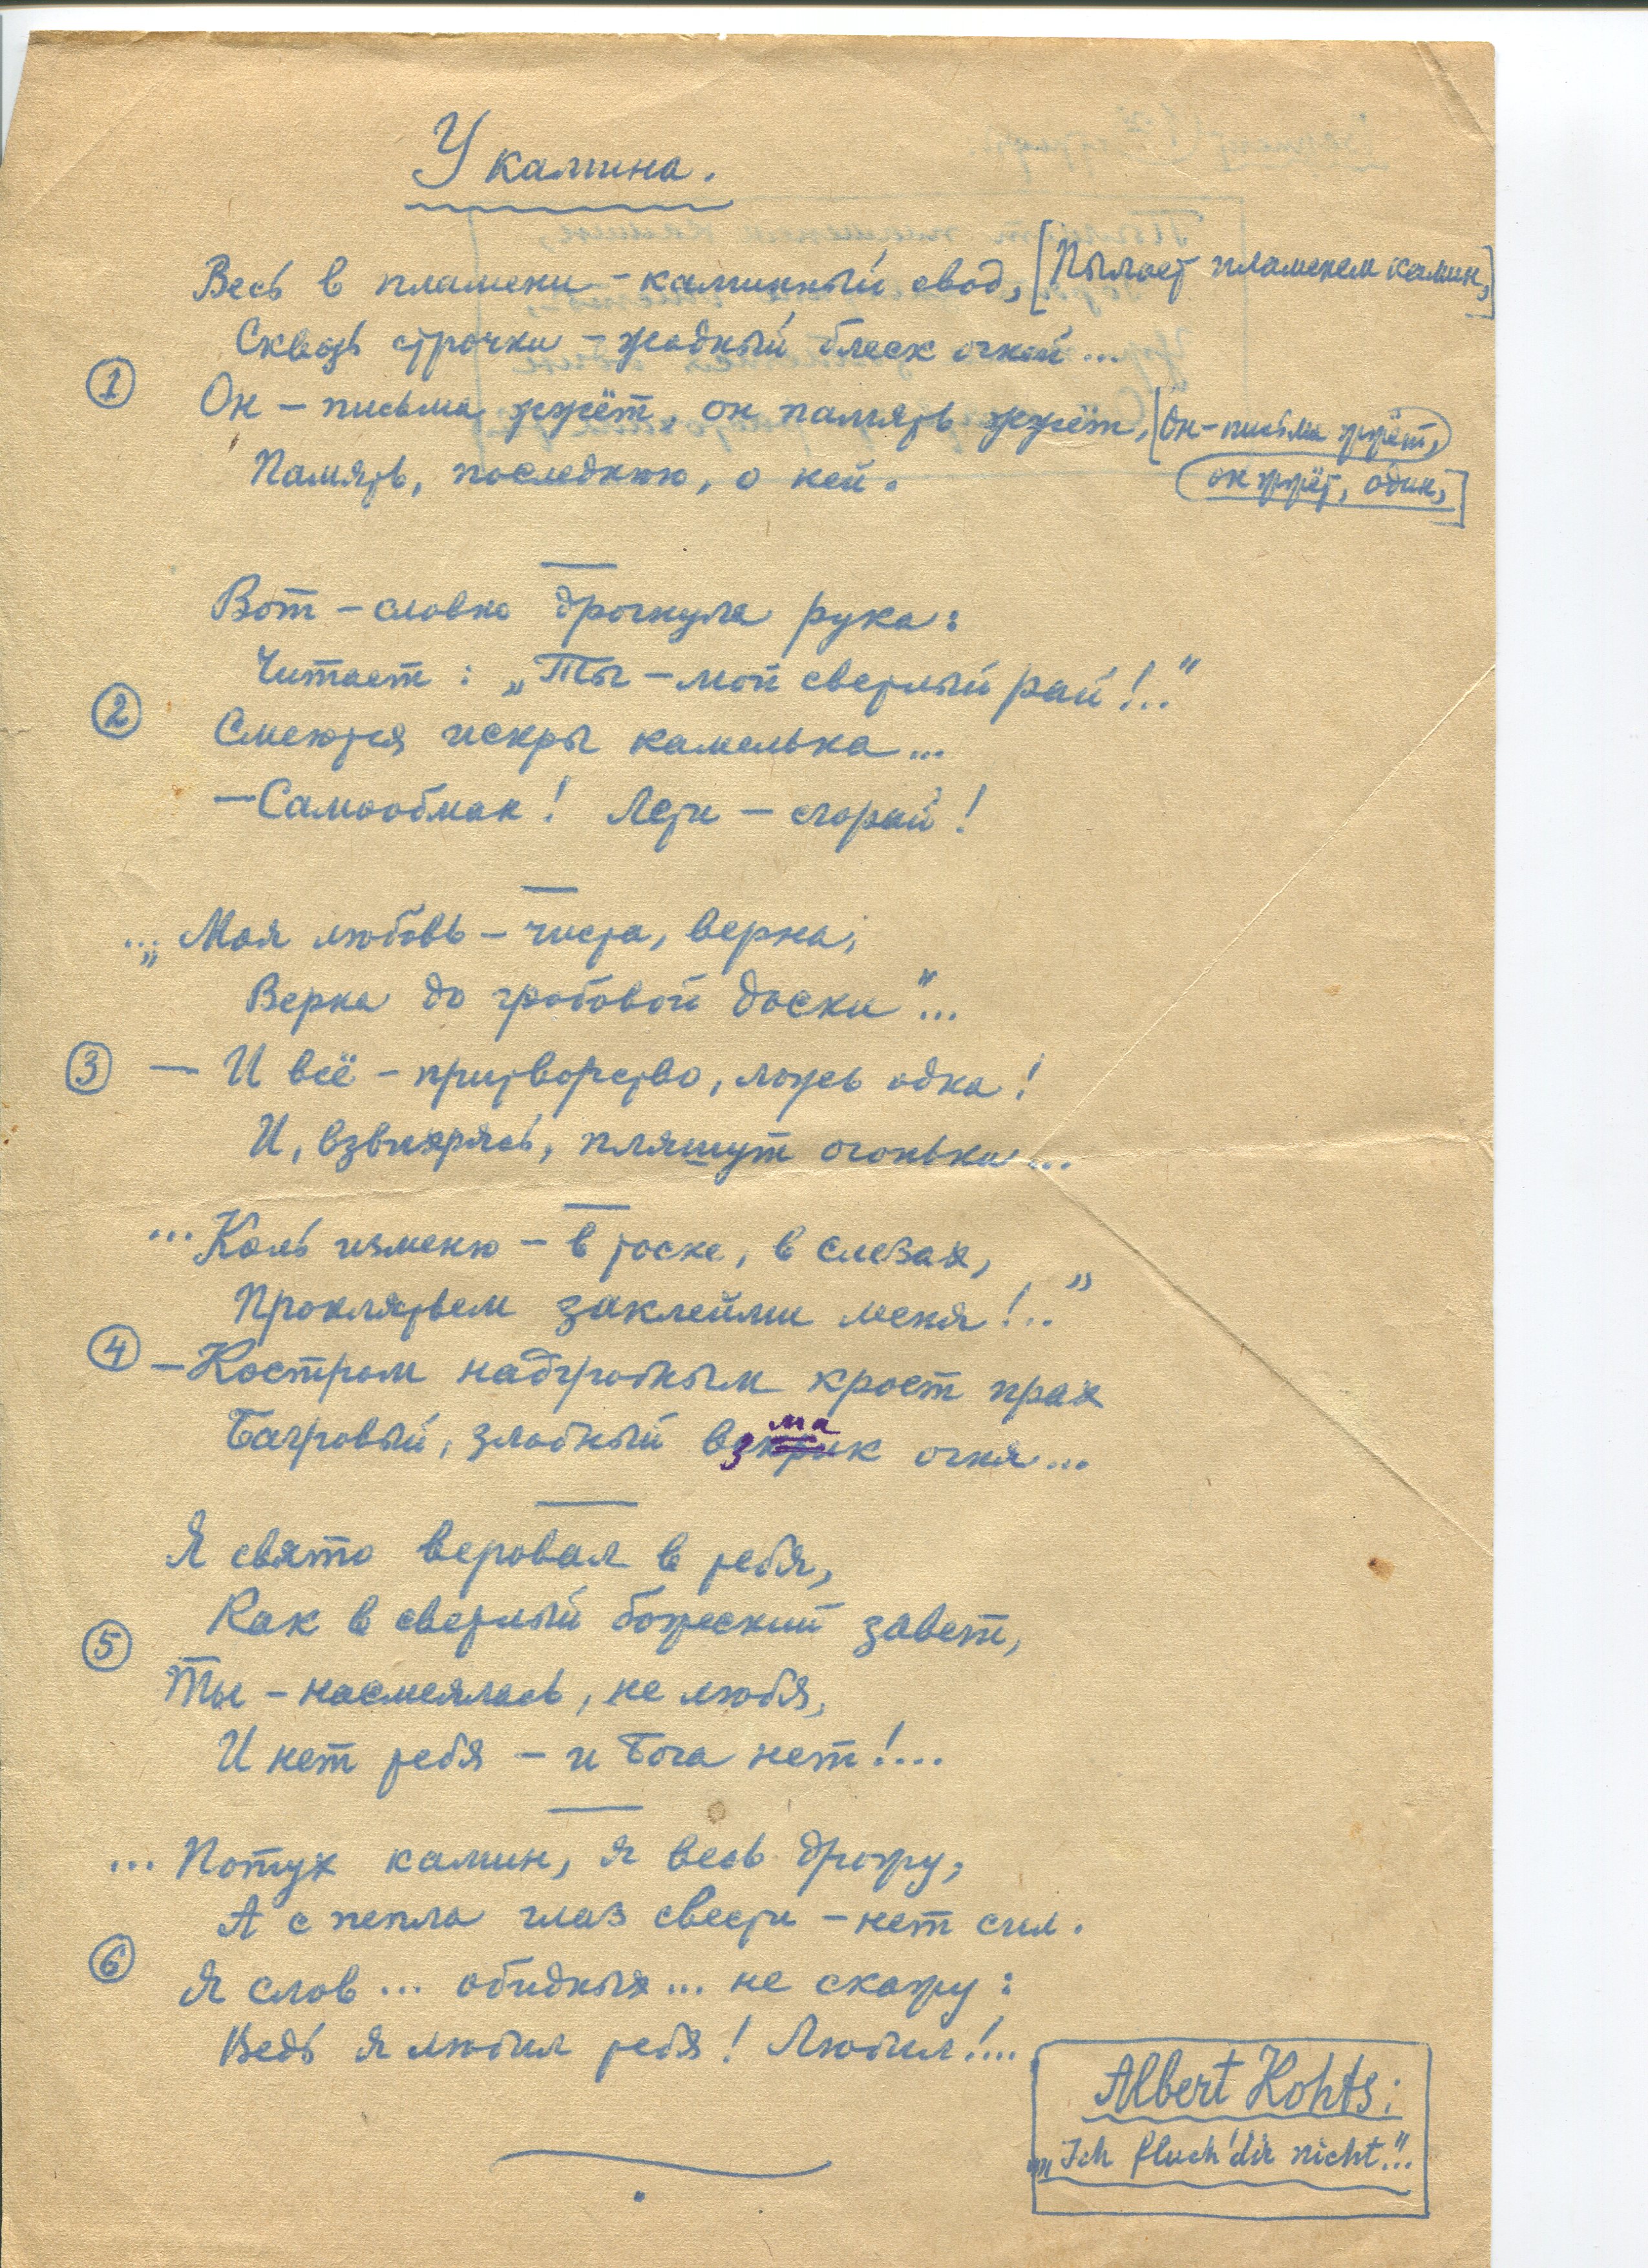 У камина.
Весь в пламени – каминный свод, [Пылает пламенем камин,]
Сквозь строчки – жадный блеск очей...
① Он – письма жжёт, он память жжёт, [Он – письма жжёт,
он жжёт, один,]
Память, последнюю, о ней.
Вот – словно дрогнула рука:
Читает: „Ты – мой светлый рай!.."
②
Смеются искры камелька...
– Самообман! Лети – сгорай!
... „Моя любовь – чиста, верна,
Верна до гробовой доски"...
③ – И всё – притворство, ложь одна!
И, взвихрясь, пляшут огоньки...
...Коль изменю – в тоске, в слезах,
Проклятьем заклейми меня!.."
④ – Костром надгробным кроет прах
Багровый, злобный взмах огня...
Я свято веровал в тебя,
Как в светлый божеский завет,
⑤
Ты – насмеялась, не любя,
И нет тебя – и Бога нет!...
... Потух камин, я весь дрожу,
А с пепла глаз свести – нет сил.
⑥
Я слов... обидных... не скажу:
Ведь я любил тебя! Любил!...
Albert Kohts:
„Ich fluch' dir nicht"...